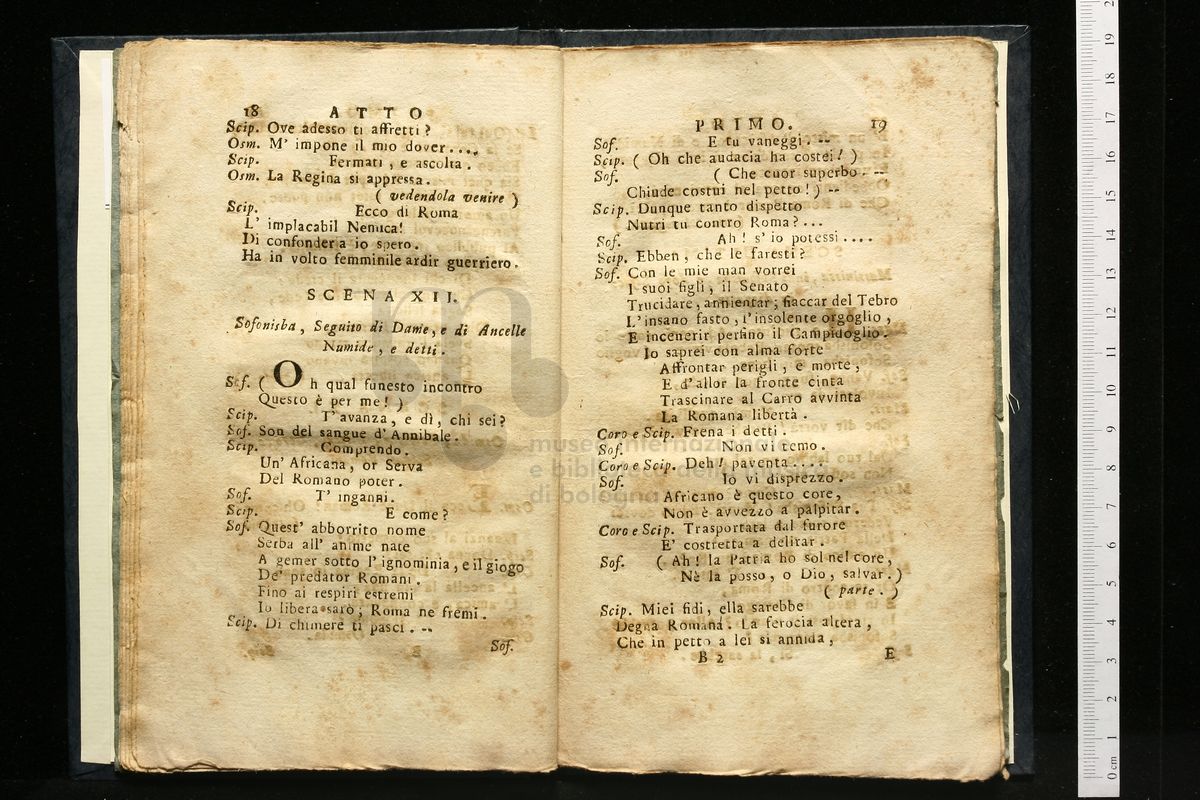 18 ATTO
Scip. Ove adesso ti affretti?
Osm. M' impone il mio dover....
Scip. Fermati, e ascolta.
Osm. La Regina si appressa.
( vedendola venire )
Scip. Ecco di Roma
L' implacabil Nemica!
Di confonder a io spero.
Ha in volto femminile ardir guerriero.
SCENA XII.
Sofonisba, Seguito di Dame, e di Ancelle
Numide, e detti.
Sof. ( Oh qual funesto incontro
Questo è per me! )
Scip. T' avanza, e dì, chi sei?
Sof. Son del sangue d' Annibale.
Scip. Comprendo.
Un' Africana, or Serva
Del Romano poter.
Sof. T' inganni.
Scip. E come?
Sof. Quest' abborrito nome
Serba all' anime nate
A gemer sotto l' ignominia, e il giogo
De' predator Romani.
Fino ai respiri estremi
Io libera sarò; Roma ne fremi.
Scip. Di chimere ti pasci. --
Sof.
PRIMO. 19
Sof. E tu vaneggi. --
Scip. ( Oh che audacia ha costei! )
Sof. ( Che cuor superbo. --
Chiude costui nel petto! ) --
Scip. Dunque tanto dispetto
Nutri tu contro Roma?...
Sof. Ah! s' io potessi....
Scip. Ebben, che le faresti?
Sof. Con le mie man vorrei
I suoi figli, il Senato
Trucidare, annientar; fiaccar del Tebro
L' insano fasto, l' insolente orgoglio,
E incenerir perfino il Campidoglio.
Io saprei con alma forte
Affrontar perigli, e morte,
E d' allor la fronte cinta
Trascinare al Carro avvinta
La Romana libertà.
Coro e Scip. Frena i detti.
Sof. Non vi temo.
Coro e Scip. Deh! paventa....
Sof. Io vi disprezzo.
Africano è questo core,
Non è avvezzo a palpitar.
Coro e Scip. Trasportata dal furore
E' costretta a delirar.
Sof. ( Ah! la Patria ho sol nel core,
Nè la posso, o Dio, salvar. )
( parte. )
Scip. Miei fidi, ella sarebbe
Degna Romana. La ferocia altera,
Che in petto a lei si annida,
B 2 E
museo internazionale
e biblioteca della musica
di bologna
0 cm 1 2 3 4 5 6 7 8 9 10 11 12 13 14 15 16 17 18 19